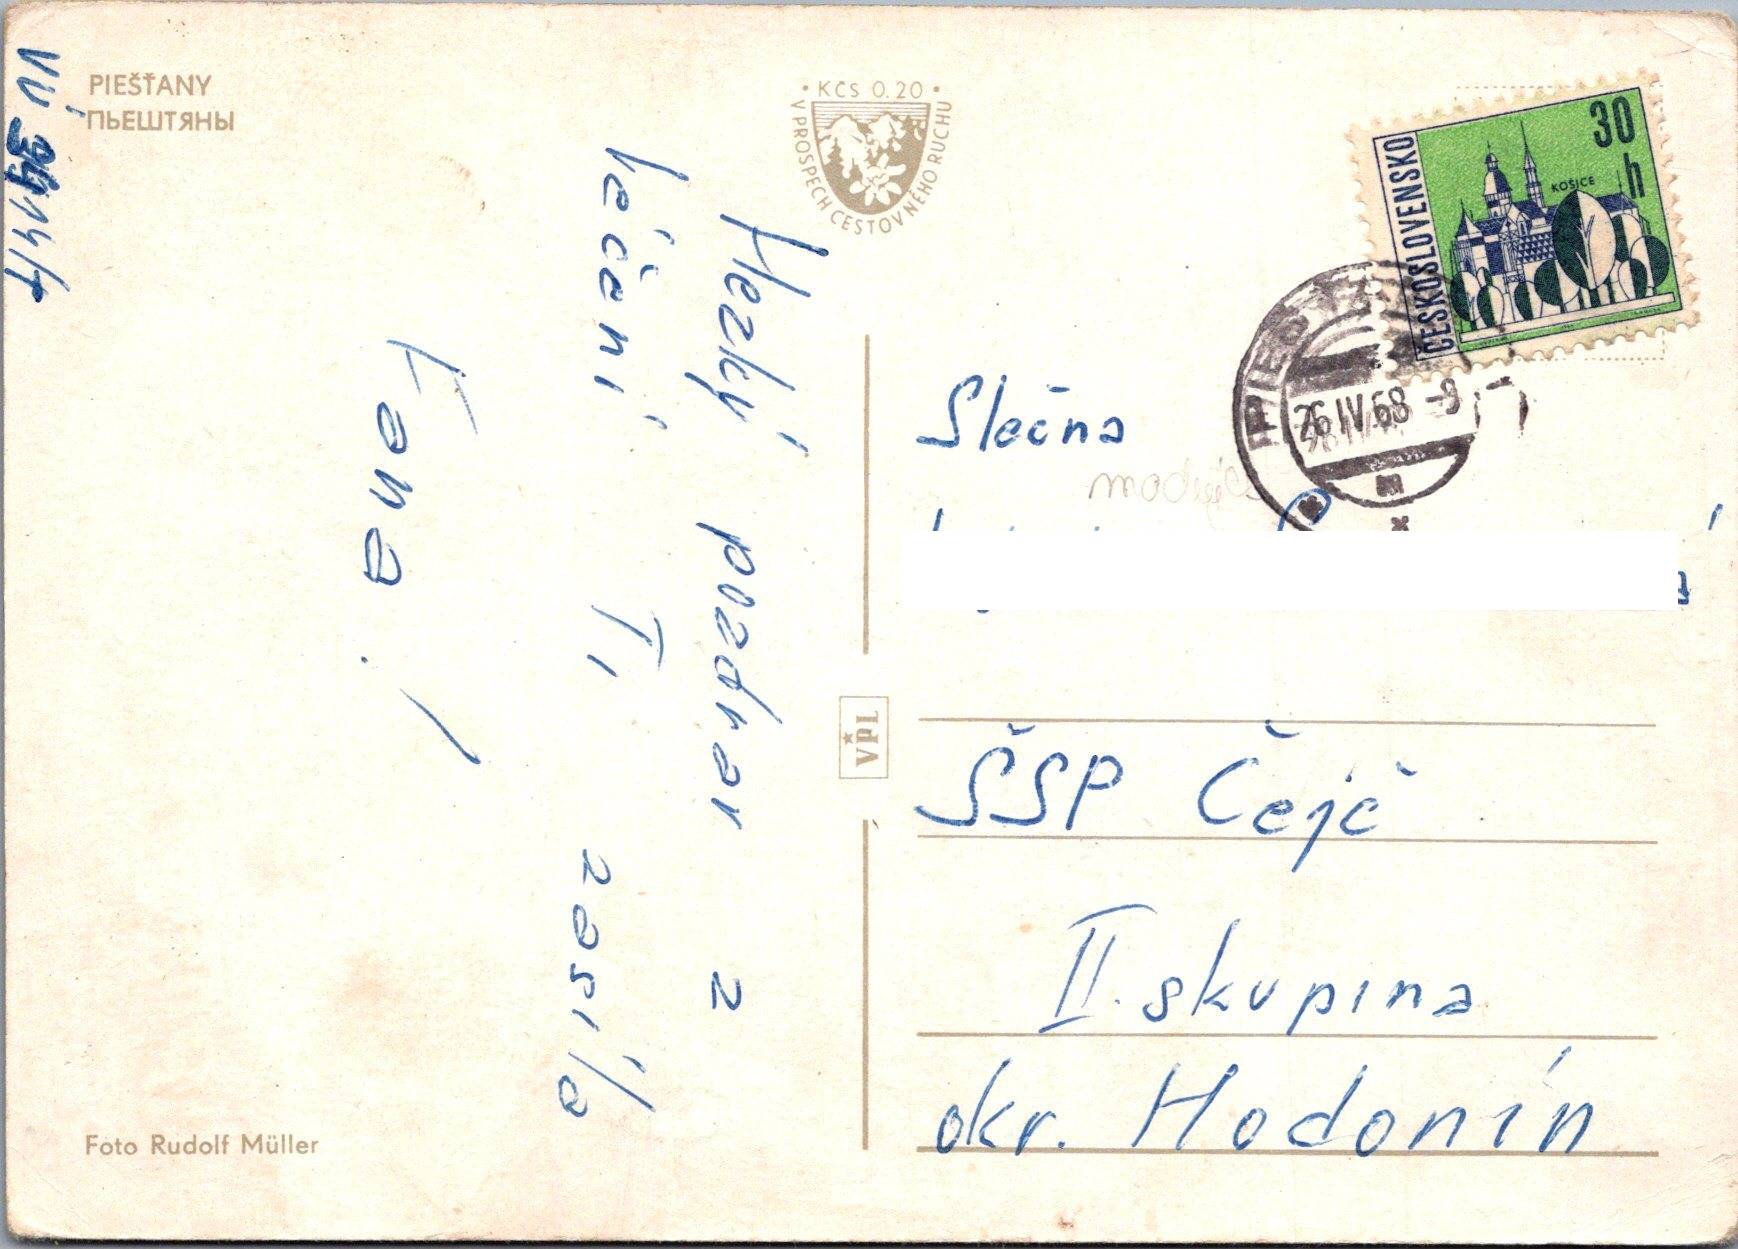 PIEŠŤANY
ПЬЕШТЯНЫ
· KČS 0.20 ·
V PROSPECH CESTOVNÉHO RUCHU
30
h
KOŠICE
ČESKOSLOVENSKO
PIEŠŤANY
26.IV.68 -9
Hezký pozdrav z
léčení Ti zasílá
Fana!
VPL
Slečna
ŠSP Čejč
II. skupina
okr. Hodonín
Foto Rudolf Müller